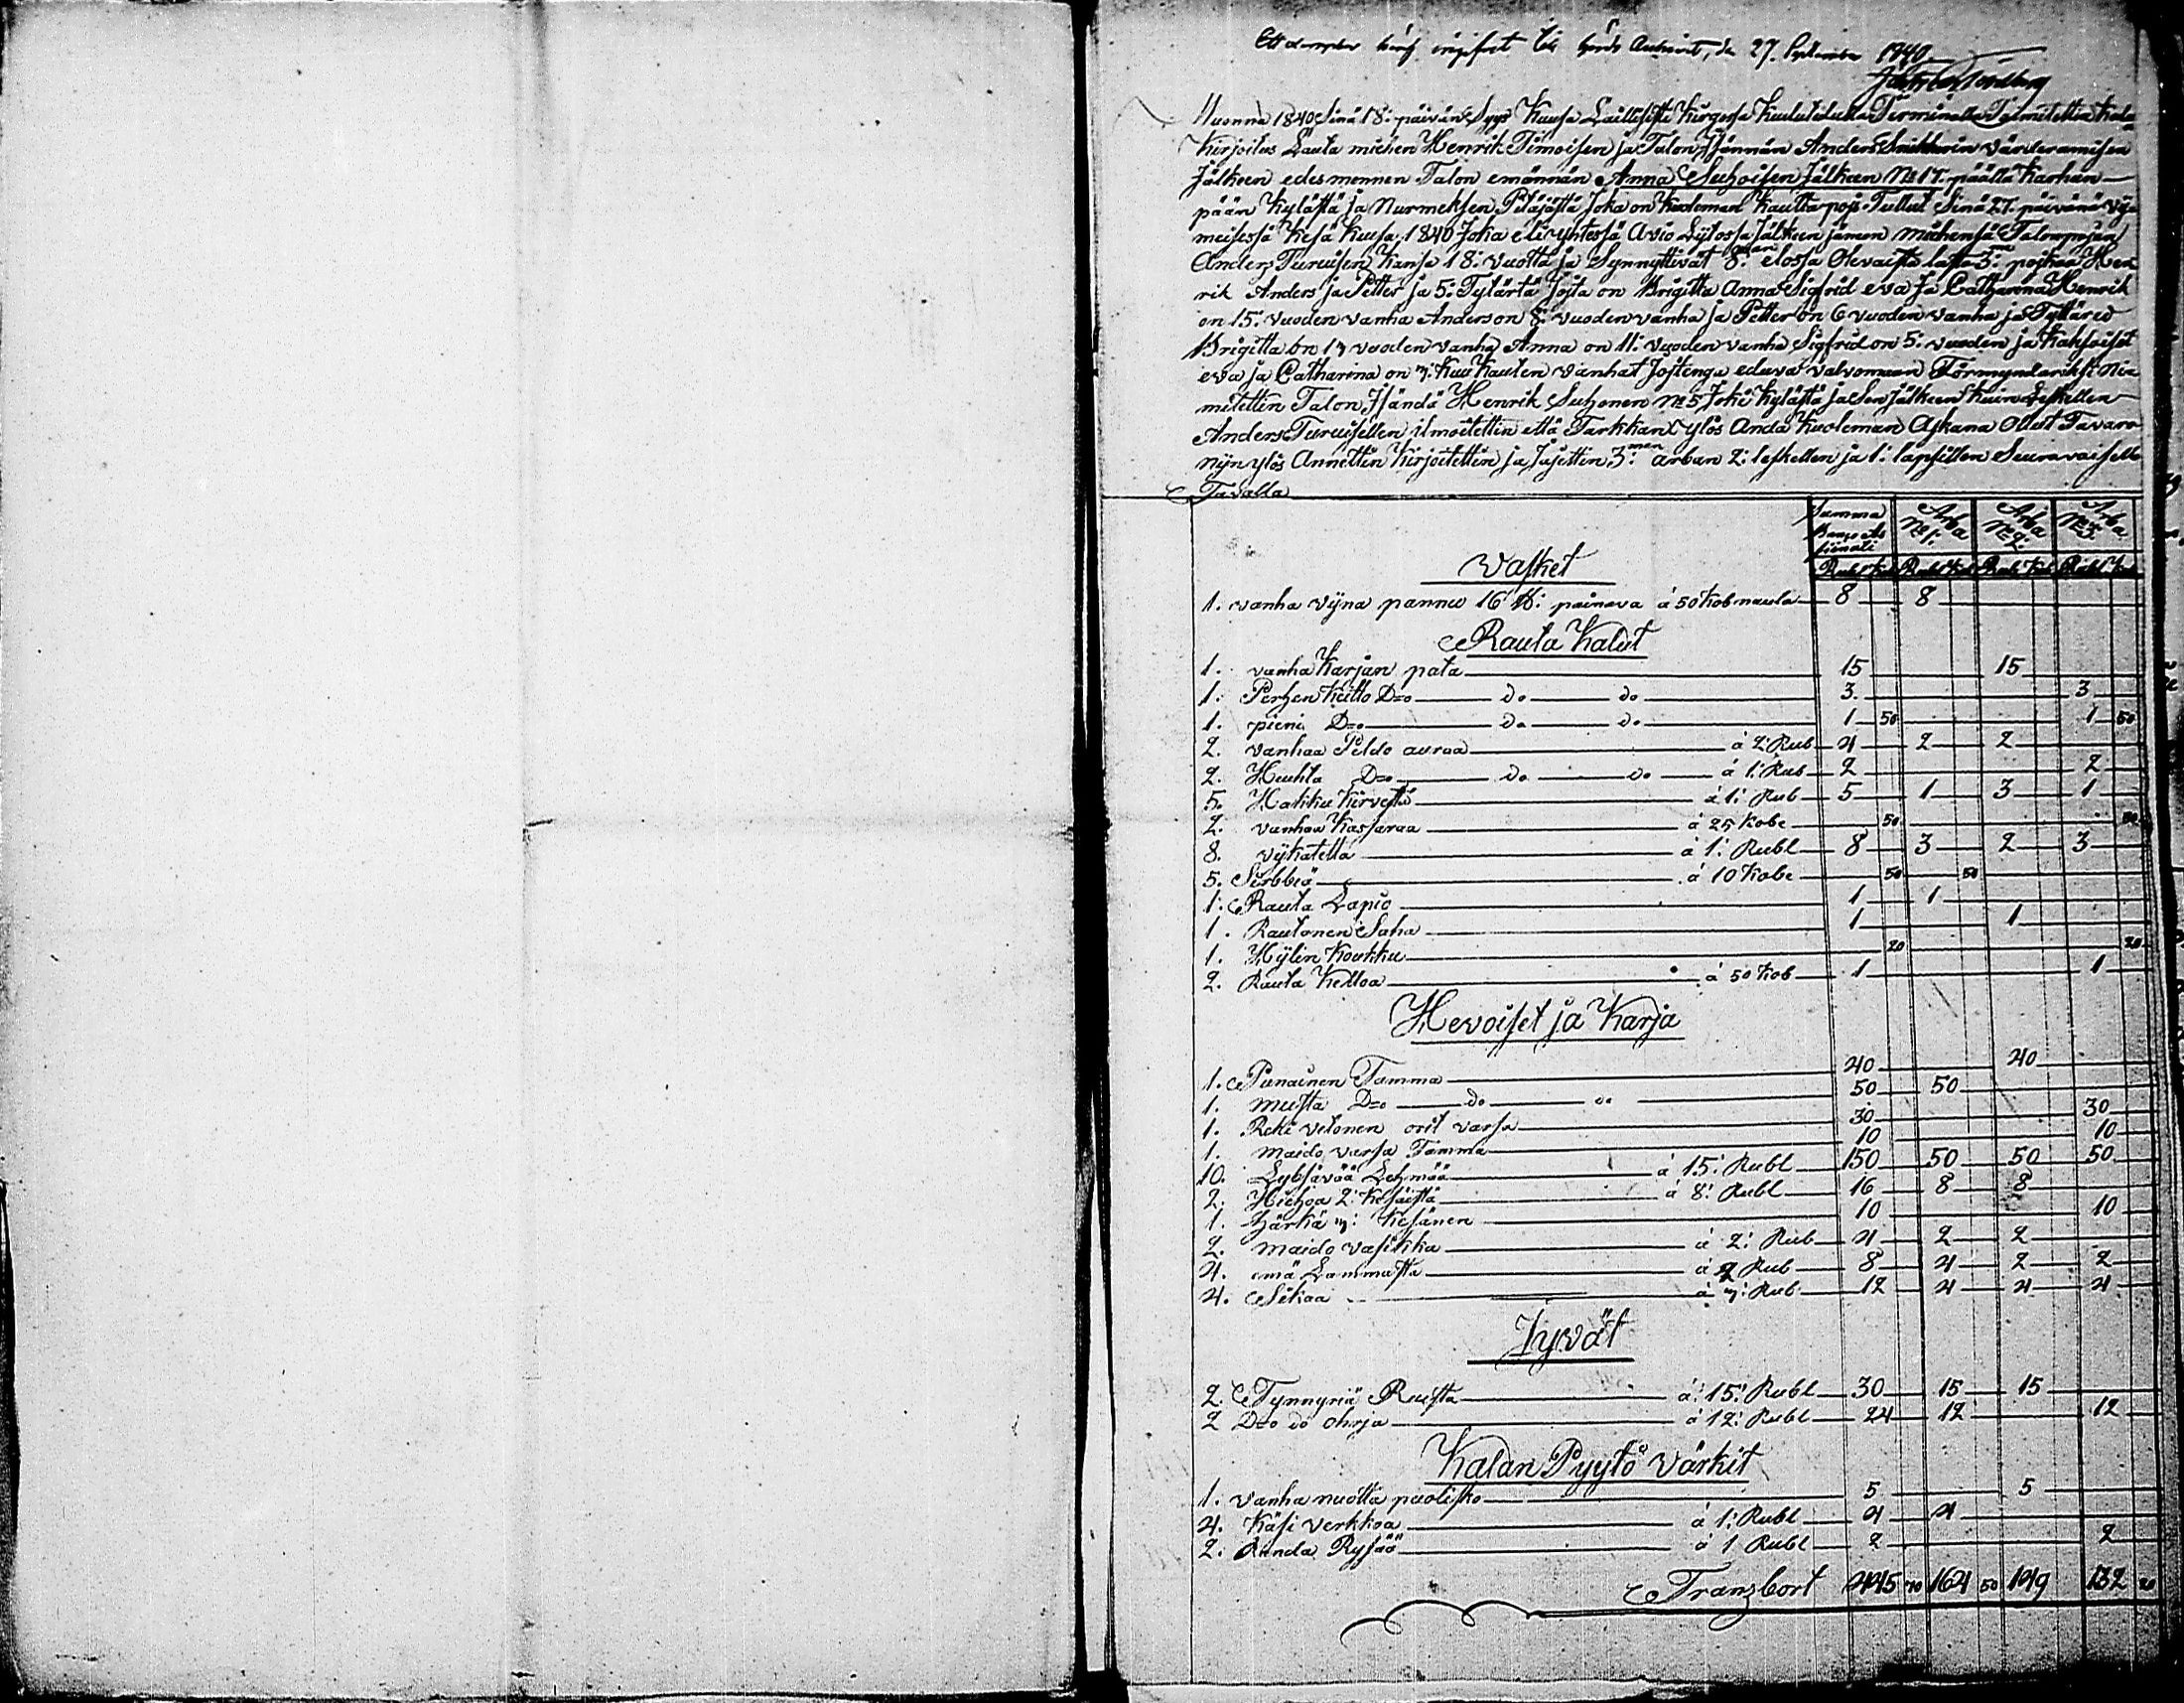 27. September 1840
Wuonna 1840 Sinä 18: päivän Syys Kuusa Laillisesti Kirgosa Kuulutetulla Terminalla Toimitettin Kalu
Kirjoitus Lauta miehen Henrik Timoisen ja Talon Isännän Anders värderamisen
Jälkeen edesmennen Talon emännän Anna Suhoisen Jälkeen No 17. päältä Karhun
pään Kylästä ja Nurmeksen Pitäjästä Joka on Kuoleman Kautta pojs Tullut Sinä 27. päivänä vij
meisessä Kesä Kuusa 1840 Joka eli yhtessä Avio Lijtossa Jälkeen jänen miehensä Talonpojan
Anders Turuisen Kansa 18: vuotta ja Synnyttivät 8: elossa Olevaista lasta 3: poikaa Hen
rik Anders ja Petter ja 5: Tytärtä Joista on Brigitta Anna Sigfrid eva Ja Catharina Henrik
on 15: vuoden vanha Anders on 8: vuoden vanha ja Petter on 6 vuoden vanha ja Tyttäred
Brigitta on 13 vuoden vanha Anna on 11: vuoden vanha Sigfrid on 5: vuoden ja Kaksoiset
eva ja Catharina on 3: Kuu Kauten vanhat Jostenga eduva valvomaan Förmyndariksi Nim
mitettin Talon Isändä Henrik Suhonen No 5 Joki Kylästä ja Sen jälkeen Kuin Leskellen
Anders Turuisellen ilmoitettin että Tarkkan ylös Anda Kuoleman Ajkana Ollut Tavara
nijn ylös Annettin Kirjoitettin ja Jajettin 3: men arban 2: leskellen ja 1: lapsillen Seuravaisella
Tavalla
Summa Banco As signati Arba No 1. Arba No 2. Arba No 3.
Rubl Kob Rubl Kob Rubl Kob Rubl Kob
Vasket
1. vanha vijna pannu 16 ℔: painava á 50 Kob naula 8 8
Rauta Kalut
1. vanha Karjan pata 15 15
1. Perhen Keitto D:o do do 3 3
1. pieni D:o do do 1 50 1 50
2. vanhaa Peldo auraa á 2: Rub 4 2 2
2. Huuhta D:o do do á 1: Rub 2 2
5. Hakku Kirvestä á 1: Rub 5 1 3 1
2. vanhaa Kassaraa á 25 Kobe 50 50
8. vijkatetta á 1: Rubl 8 3 2 3
5. Sirbbiä á 10 Kobe 50 50
1. Rauta Lapio 1 1
1. Rautanen Saha 1 1
1. Hÿlin Koukku 20 20
2. Rauta Kelloa á 50 Kob 1 1
Hevoiset ja Karja
1. Punainen Tamma 40 40
1. musta D:o do do 50 50
1. Reki vetonen orit varsa 30 30
1. maido varsa Tamma 10 10
10. Lybsävää Lehmää á 15: Rubl 150 50 50 50
2. Hiehoa 2: Kesäistä á 8: Rubl 16 8 8
1. härkä 3: Kesänen 10 10
2. maido vasikka á 2: Rub 4 2 2
4. emä Lammasta á 2 Rub 8 4 2 2
4. Sikaa á 3: Rub 12 4 4 4
Jyvät
2. Tynnyriä Ruista á 15: Rubl 30 15 15
2 D:o do ohrja á 12: Rubl 24 12 12
Kalan Pyytö värkit
1. vanha nuotta puolisko 5 5
4. Käsi verkkoa á 1: Rubl 4 4
2. Randa Rysää á 1 Rubl 2 2
Transbort 445 70 164 50 149 132 20